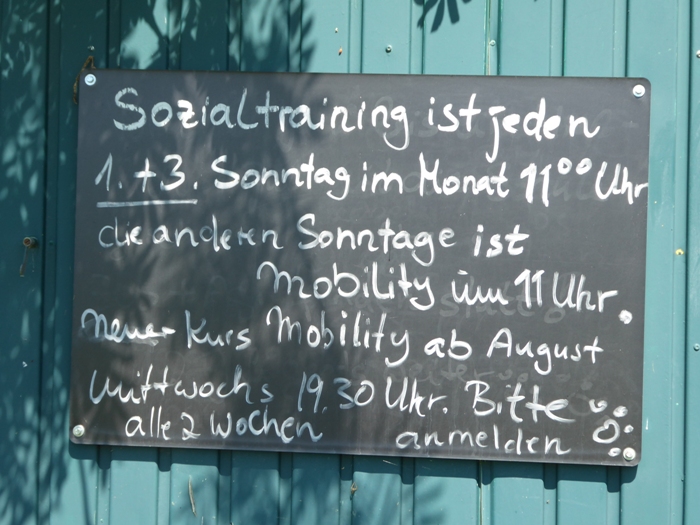 Sozialtraining ist jeden
1. + 3. Sonntag im Monat 11⁰⁰ Uhr
die anderen Sonntage ist
Mobility um 11 Uhr.
Neuer Kurs Mobility ab August
Mittwochs 19.30 Uhr. Bitte
alle 2 Wochen anmelden